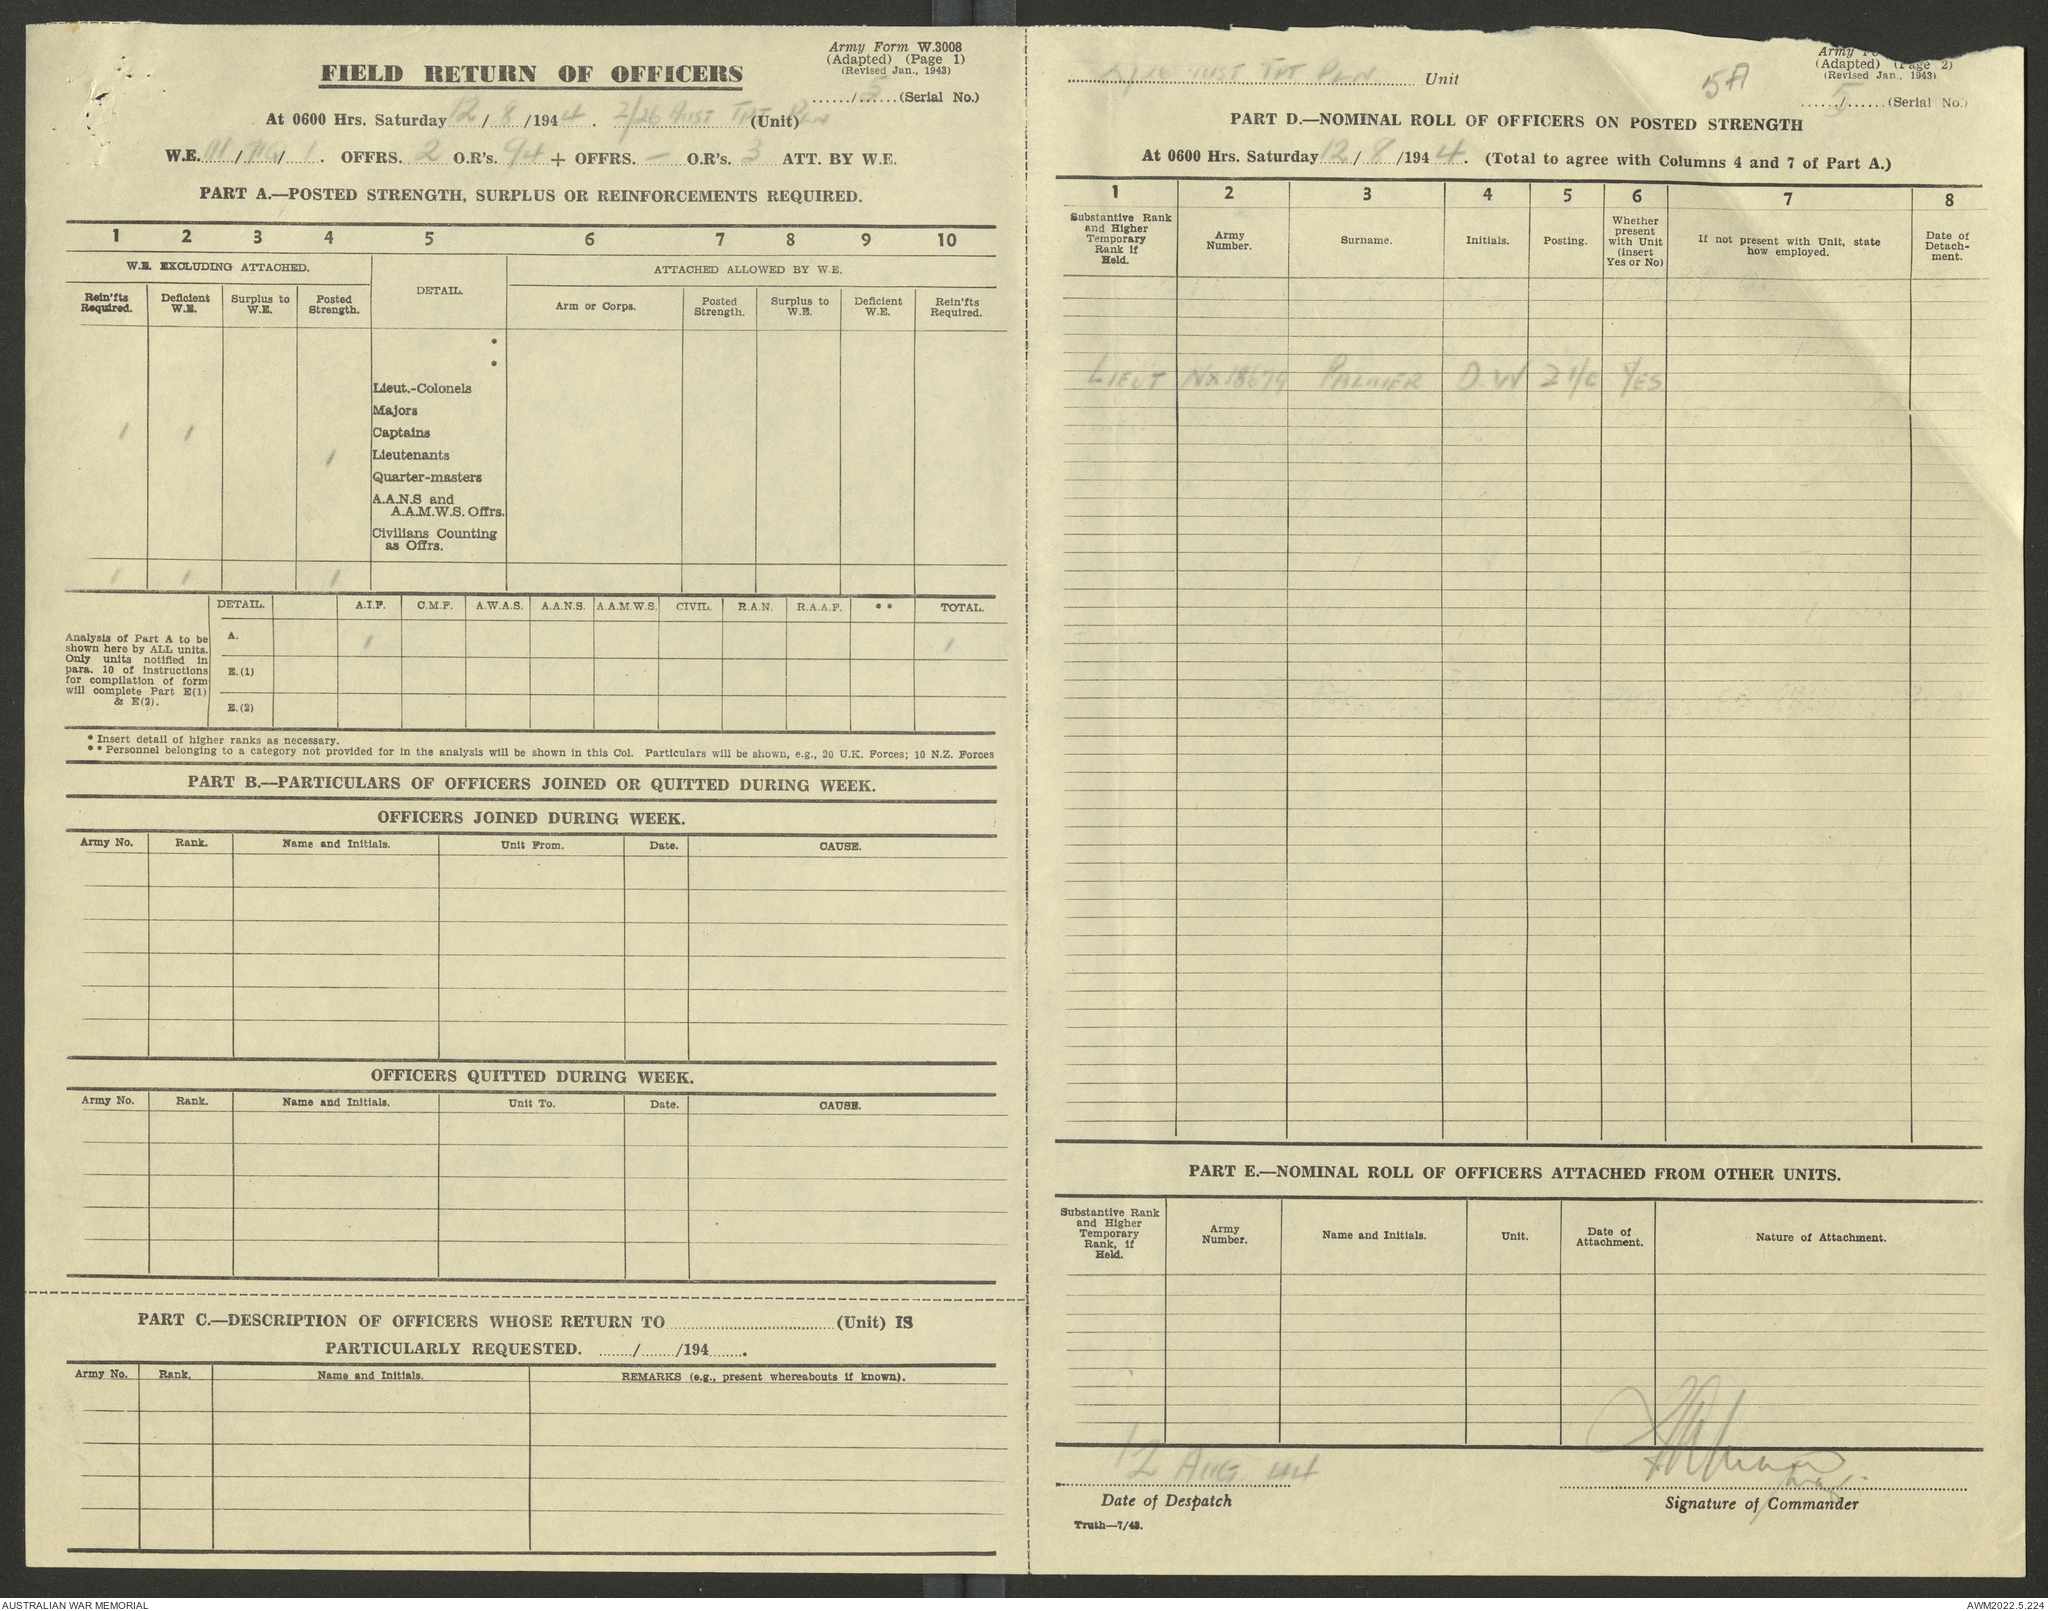 Army Form W.3008
(Adapted) (Page 1)
(Revised Jan., 1943)
FIELD RETURN OF OFFICERS
....../ 5 ...... (Serial No.)
At 0600 Hrs. Saturday 12 / 8 /194 4 . 2/26 AUST TPT PLN (Unit)
W.E. III / / 1 . OFFRS. 2 O.R's. 94 + OFFRS. — O.R's. 3 ATT. BY W.E.
PART A.—POSTED STRENGTH, SURPLUS OR REINFORCEMENTS REQUIRED.
1 2 3 4 5 6 7 8 9 10
W.E. EXCLUDING ATTACHED. DETAIL. ATTACHED ALLOWED BY W.E.
Rein'fts Required. Deficient W.E. Surplus to W.E. Posted Strength. Arm or Corps. Posted Strength. Surplus to W.E. Deficient W.E. Rein'fts Required.
*
*
Lieut.-Colonels
Majors
1 1 Captains
1 Lieutenants
Quarter-masters
A.A.N.S and
A.A.M.W.S. Offrs.
Civilians Counting
as Offrs.
1 1 1
DETAIL. A.I.F. C.M.F. A.W.A.S. A.A.N.S. A.A.M.W.S. CIVIL. R.A.N. R.A.A.F. * * TOTAL.
Analysis of Part A to be
shown here by ALL units.
Only units notified in
para. 10 of instructions
for compilation of form
will complete Part E(1)
& E(2).
A. 1 1
E.(1)
E.(2)
* Insert detail of higher ranks as necessary.
* * Personnel belonging to a category not provided for in the analysis will be shown in this Col. Particulars will be shown, e.g., 20 U.K. Forces; 10 N.Z. Forces
PART B.—PARTICULARS OF OFFICERS JOINED OR QUITTED DURING WEEK.
OFFICERS JOINED DURING WEEK.
Army No. Rank. Name and Initials. Unit From. Date. CAUSE.
OFFICERS QUITTED DURING WEEK.
Army No. Rank. Name and Initials. Unit To. Date. CAUSE.
PART C.—DESCRIPTION OF OFFICERS WHOSE RETURN TO.....................................(Unit) IS
PARTICULARLY REQUESTED. ......../......../194........
Army No. Rank. Name and Initials. REMARKS (e.g., present whereabouts if known).
Army
(Adapted) (Page 2)
(Revised Jan., 1943)
2/26 AUST TPT PLN Unit
5A
....../ 5 ...... (Serial No.)
PART D.—NOMINAL ROLL OF OFFICERS ON POSTED STRENGTH
At 0600 Hrs. Saturday 12 / 8 /194 4 . (Total to agree with Columns 4 and 7 of Part A.)
1 2 3 4 5 6 7 8
Substantive Rank and Higher Temporary Rank if Held. Army Number. Surname. Initials. Posting. Whether present with Unit (insert Yes or No) If not present with Unit, state how employed. Date of Detach-ment.
LIEUT NX18679 PALMER D.W 2 I/C YES
PART E.—NOMINAL ROLL OF OFFICERS ATTACHED FROM OTHER UNITS.
Substantive Rank and Higher Temporary Rank, if Held. Army Number. Name and Initials. Unit. Date of Attachment. Nature of Attachment.
12 AUG 44
Date of Despatch
Signature of Commander
Truth—7/43.
AUSTRALIAN WAR MEMORIAL
AWM2022.5.224